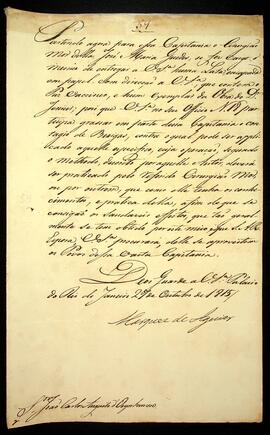 54
Partindo agora para essa Capitania o Cirurgião
Mór della, José
de entregar a V. Sª huma Lata
em papel. Sem direcção a V. Sª; que contem o
Puz Vaccinico, e hum Exemplar da Obra de
Jenner; por que V. Sª no seu Officio Nº
ticipa grassar em parte dessa Capitania o con-
tagio de Bexigas, contra o qual pode ser appli-
cado aquelle especifico, cuja operação, segundo
o methodo, descripto por aquelle Autor, deverá
ser praticado pelo referido Cirurgião Mór,
ou por outrem, que como elle tenha os conhe-
cimentos, e pratica della, afim de que se
consigão os saudaveis effeitos, que tão geral-
mente se tem obtido por este meio; e que S. A. R.
Espera, V. Sª procurará, delle se aproveitem
os Povos dessa vasta Capitania.
Deos Guarde a V. Sª Palacio
do Rio de Janeiro de Outubro de 1815
Marquez de Aguiar
Sñr João Carlos Augusto d'Oeynhausen